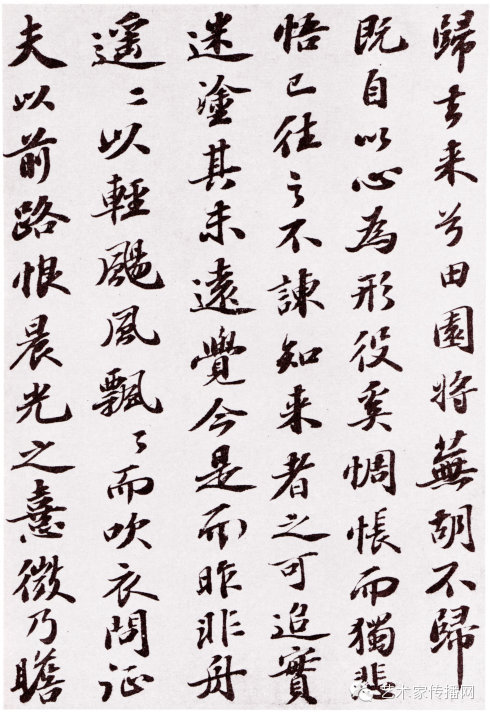 歸去来兮田園將蕪胡不歸
既自以心為形役奚惆悵而獨悲
悟已往之不諫知来者之可追實
迷塗其未遠覺今是而昨非舟
遥〻以輕颺風飄〻而吹衣問征
夫以前路恨晨光之憙微乃瞻
艺术家传播网